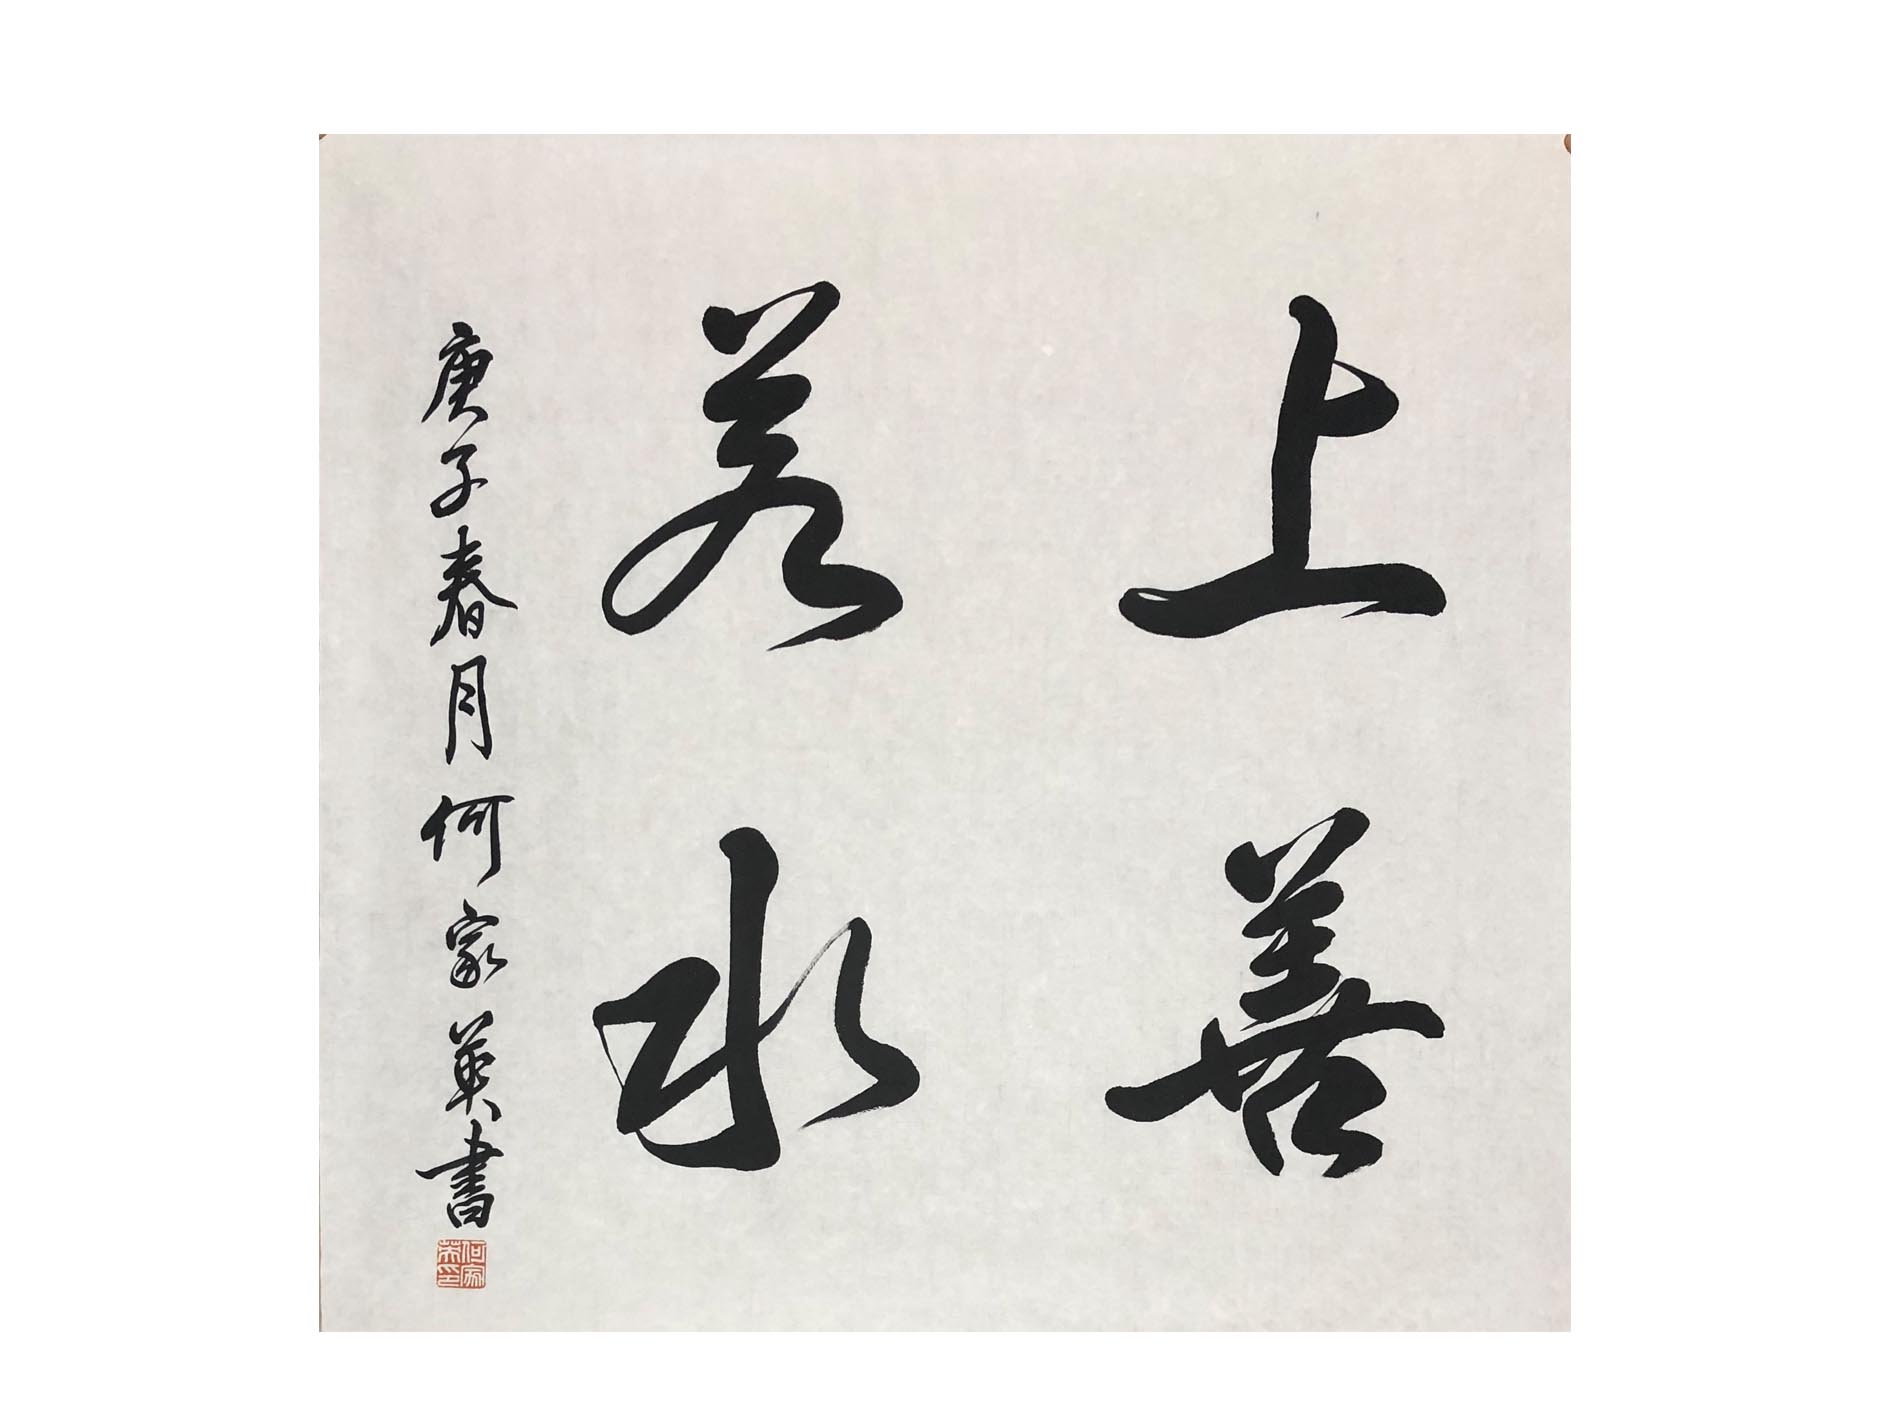 上善
若水
庚子春月何家英書
何家英印